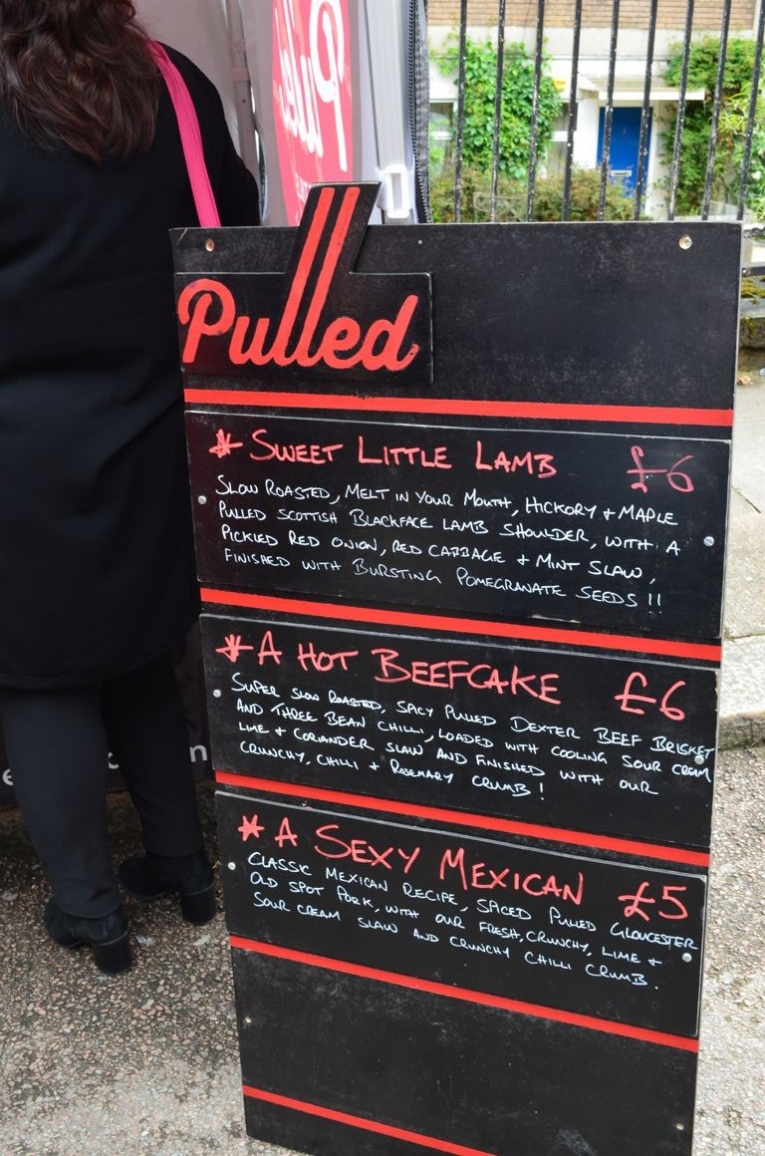 Pulled
Pulled
* SWEET LITTLE LAMB £6
SLOW ROASTED, MELT IN YOUR MOUTH, HICKORY + MAPLE
PULLED SCOTTISH BLACKFACE LAMB SHOULDER, WITH A
PICKLED RED ONION, RED CABBAGE + MINT SLAW,
FINISHED WITH BURSTING POMEGRANATE SEEDS !!
* A HOT BEEFCAKE £6
SUPER SLOW ROASTED, SPICY PULLED DEXTER BEEF BRISKET
AND THREE BEAN CHILLI, LOADED WITH COOLING SOUR CREAM
LIME + CORIANDER SLAW AND FINISHED WITH OUR
CRUNCHY, CHILLI + ROSEMARY CRUMB !
* A SEXY MEXICAN £5
CLASSIC MEXICAN RECIPE, SPICED PULLED GLOUCESTER
OLD SPOT PORK, WITH OUR FRESH, CRUNCHY, LIME +
SOUR CREAM SLAW AND CRUNCHY CHILLI CRUMB.